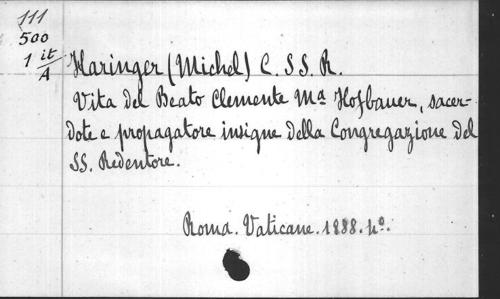 111
500
1 it
A
Haringer (Michel) C. SS. R.
Vita del Beato Clemente Ma Hofbauer, sacer-
dote e propagatore insigne della Congregazione del
SS. Redentore.
Roma. Vaticane. 1888. 4o.